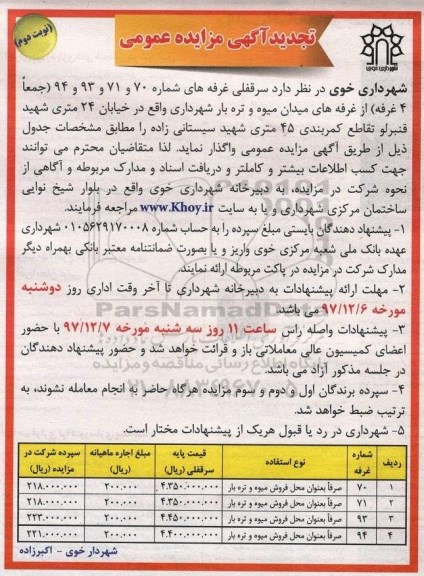 شهرداری خوی
تجدید آگهی مزایده عمومی
(نوبت دوم)
شهرداری خوی در نظر دارد سرقفلی غرفه های شماره ۷۰ و ۷۱ و ۹۳ و ۹۴ (جمعاً
۴ غرفه) از غرفه های میدان میوه و تره بار شهرداری واقع در خیابان ۲۴ متری شهید
قنبرلو تقاطع کمربندی ۴۵ متری شهید سیستانی زاده را مطابق مشخصات جدول
ذیل از طریق آگهی مزایده عمومی واگذار نماید. لذا متقاضیان محترم می توانند
جهت کسب اطلاعات بیشتر و کاملتر و دریافت اسناد و مدارک مربوطه و آگاهی از
نحوه شرکت در مزایده، به دبیرخانه شهرداری خوی واقع در بلوار شیخ نوایی
ساختمان مرکزی شهرداری و یا به سایت www.Khoy.ir مراجعه فرمایند.
۱- پیشنهاد دهندگان بایستی مبلغ سپرده را به حساب شماره ۰۱۰۵۶۲۹۱۷۰۰۰۸ شهرداری
عهده بانک ملی شعبه مرکزی خوی واریز و یا بصورت ضمانتنامه معتبر بانکی بهمراه دیگر
مدارک شرکت در مزایده در پاکت مربوطه ارائه نمایند.
۲- مهلت ارائه پیشنهادات به دبیرخانه شهرداری تا آخر وقت اداری روز دوشنبه
مورخه ۹۷/۱۲/۶ می باشد.
۳- پیشنهادات واصله راس ساعت ۱۱ روز سه شنبه مورخه ۹۷/۱۲/۷ با حضور
اعضای کمیسیون عالی معاملاتی باز و قرائت خواهد شد و حضور پیشنهاد دهندگان
در جلسه مذکور آزاد می باشد.
۴- سپرده برندگان اول و دوم و سوم مزایده هرگاه حاضر به انجام معامله نشوند، به
ترتیب ضبط خواهد شد.
۵- شهرداری در رد یا قبول هریک از پیشنهادات مختار است.
ردیف شماره غرفه نوع استفاده قیمت پایه سرقفلی (ریال) مبلغ اجاره ماهیانه (ریال) سپرده شرکت در مزایده (ریال)
۱ ۷۰ صرفاً بعنوان محل فروش میوه و تره بار ۴.۳۵۰.۰۰۰.۰۰۰ ۲۰۰.۰۰۰ ۲۱۸.۰۰۰.۰۰۰
۲ ۷۱ صرفاً بعنوان محل فروش میوه و تره بار ۴.۳۵۰.۰۰۰.۰۰۰ ۲۰۰.۰۰۰ ۲۱۸.۰۰۰.۰۰۰
۳ ۹۳ صرفاً بعنوان محل فروش میوه و تره بار ۴.۴۵۰.۰۰۰.۰۰۰ ۲۰۰.۰۰۰ ۲۲۳.۰۰۰.۰۰۰
۴ ۹۴ صرفاً بعنوان محل فروش میوه و تره بار ۴.۴۰۰.۰۰۰.۰۰۰ ۲۰۰.۰۰۰ ۲۲۱.۰۰۰.۰۰۰
شهردار خوی - اکبرزاده
ParsNamadData